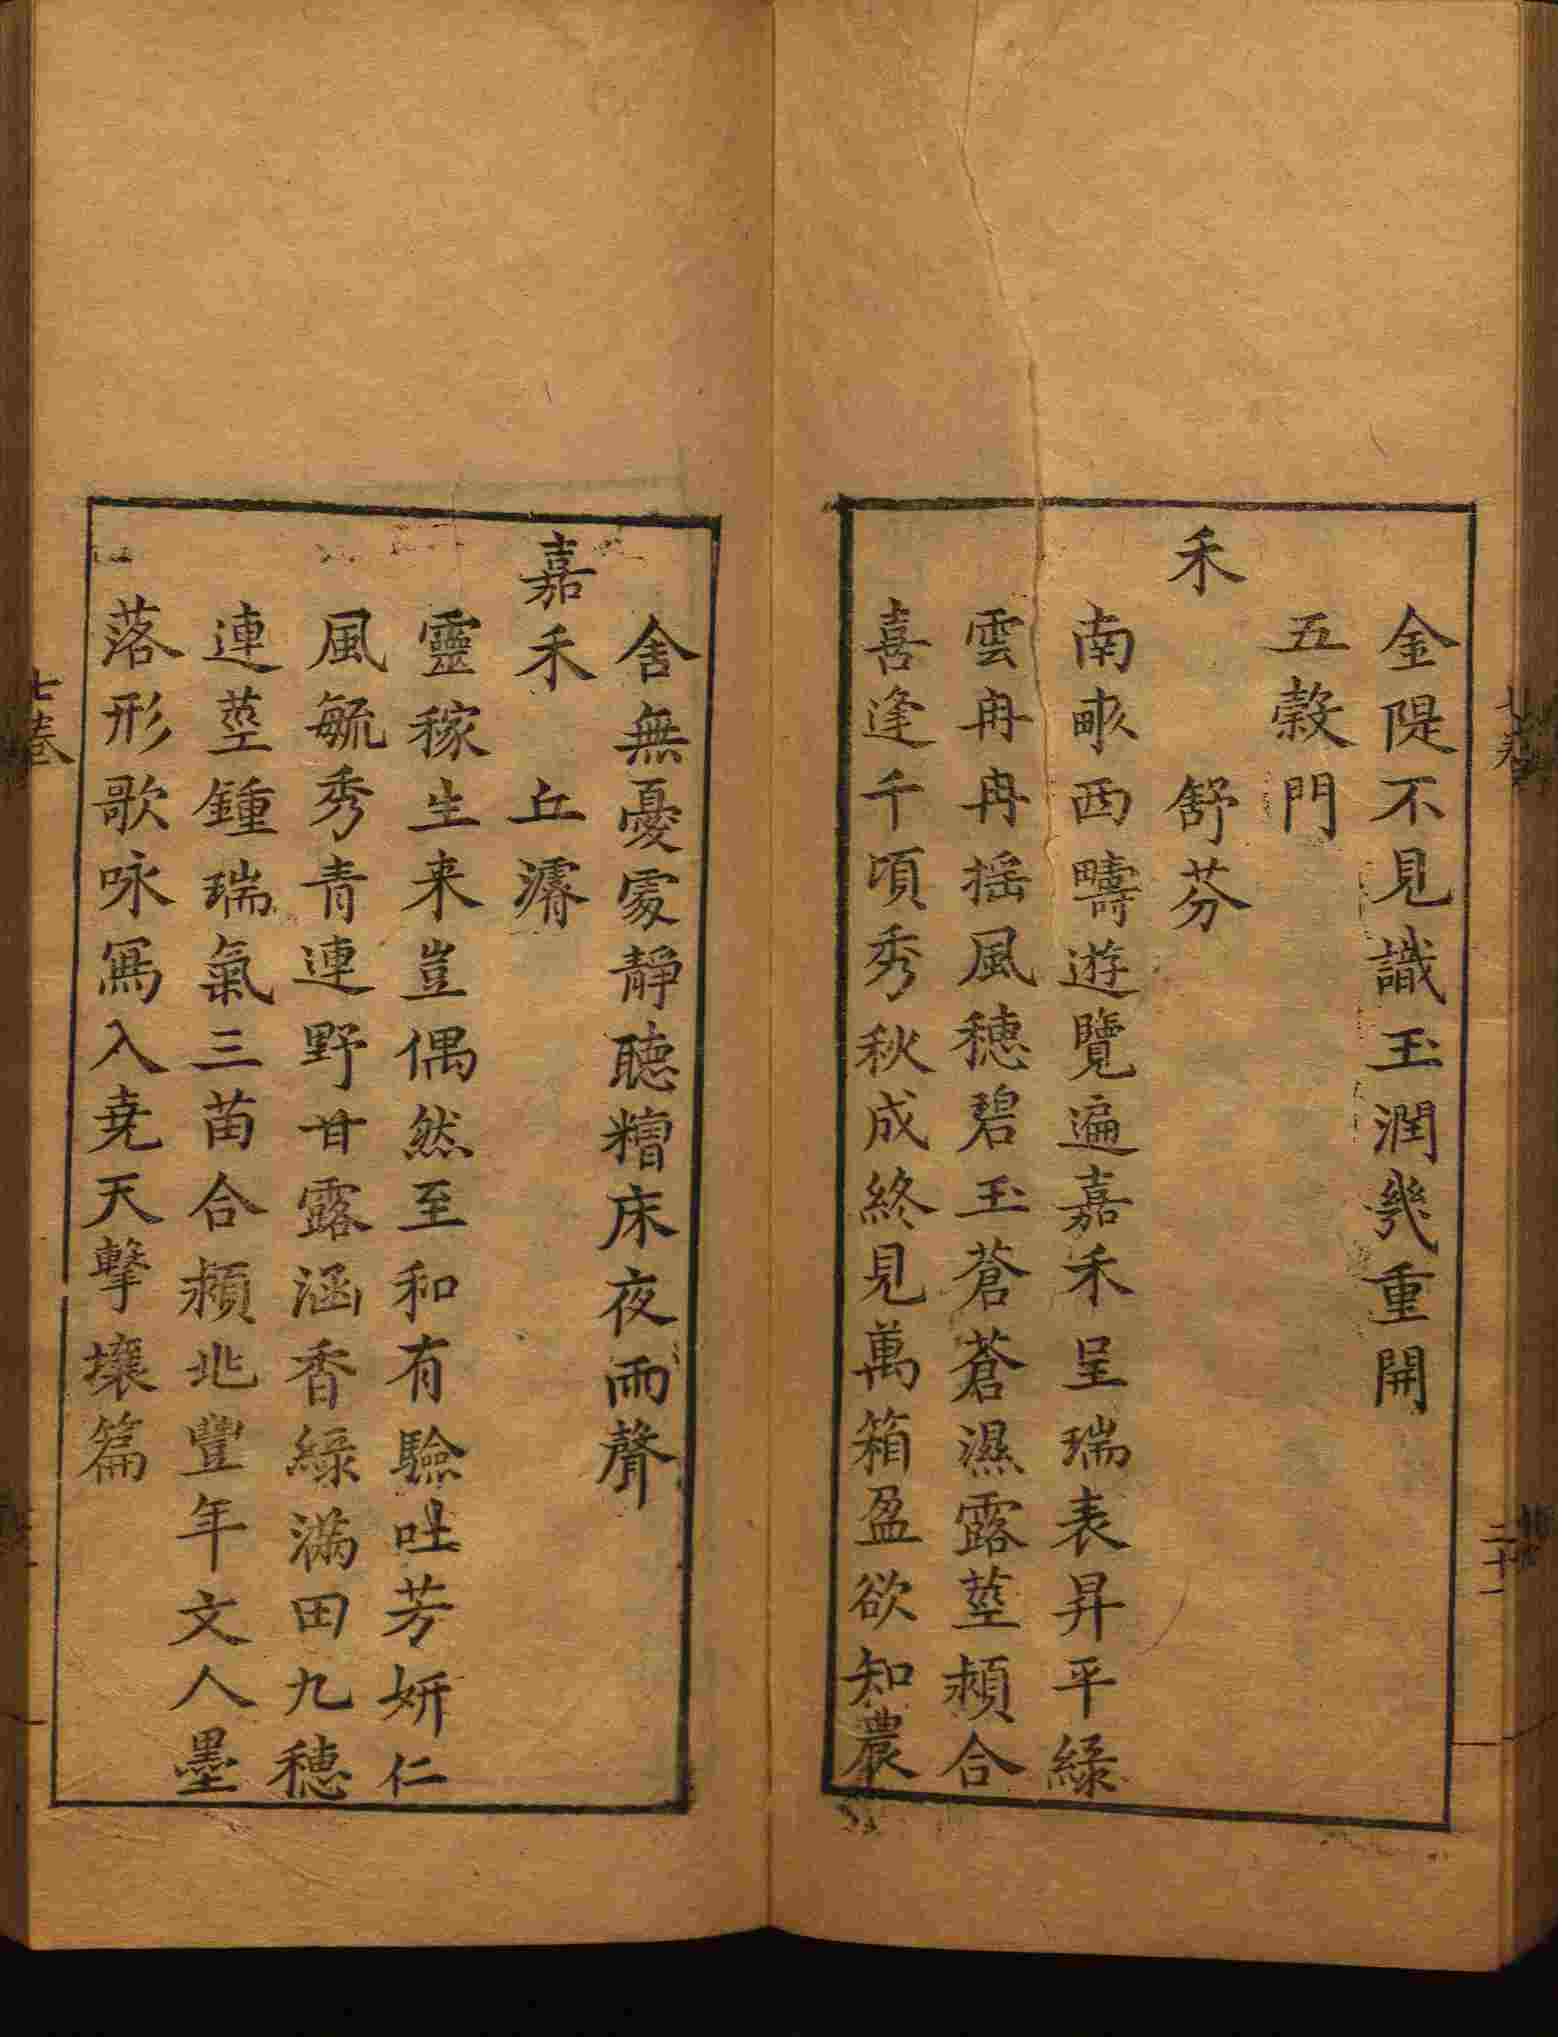 金隄不見識玉潤幾重開
五穀門
禾　舒芬
南畝西疇遊覽遍嘉禾呈瑞表昇平綠
雲冉冉搖風穗碧玉蒼蒼濕露莖頴合
喜逢千頃秀秋成終見萬箱盈欲知農
舍無憂處靜聽糟床夜雨聲
嘉禾　丘濬
靈稼生来豈偶然至和有驗吐芳妍仁
風毓秀青連野甘露涵香綠滿田九穗
連莖鍾瑞氣三苗合頴兆豐年文人墨
落形歌咏寫入堯天擊壤篇
七卷
二十一